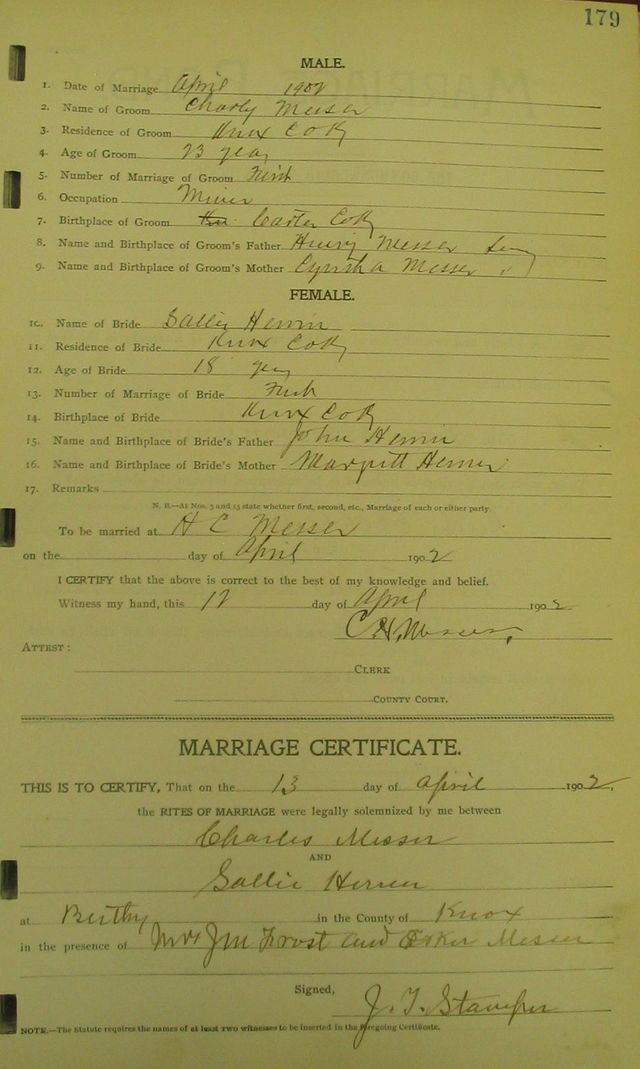 179
MALE.
1. Date of Marriage April 1902
2. Name of Groom Charly Messer
3. Residence of Groom Knox Co Ky
4. Age of Groom 23 year
5. Number of Marriage of Groom First
6. Occupation Miner
7. Birthplace of Groom Carter Co Ky
8. Name and Birthplace of Groom's Father Henry Messer
9. Name and Birthplace of Groom's Mother Cyntha Messer "
FEMALE.
10. Name of Bride Sallie Herrin
11. Residence of Bride Knox Co Ky
12. Age of Bride 18 year
13. Number of Marriage of Bride First
14. Birthplace of Bride Knox Co Ky
15. Name and Birthplace of Bride's Father John Herrin
16. Name and Birthplace of Bride's Mother Margrett Herrin
17. Remarks
N. B.—At Nos. 5 and 13 state whether first, second, etc., Marriage of each or either party.
To be married at H C Messer
on the day of April 1902
I CERTIFY that the above is correct to the best of my knowledge and belief.
Witness my hand, this 12 day of April 1902
C. H. Messer.
ATTEST:
CLERK
COUNTY COURT.
MARRIAGE CERTIFICATE.
THIS IS TO CERTIFY, That on the 13 day of April 1902,
the RITES OF MARRIAGE were legally solemnized by me between
Charles Messer
AND
Sallie Herren
at in the County of Knox
in the presence of Mrs Jm Frost and Messer
Signed,
J. T. Stamper
NOTE.—The Statute requires the names of at least two witnesses to be inserted in the foregoing Certificate.